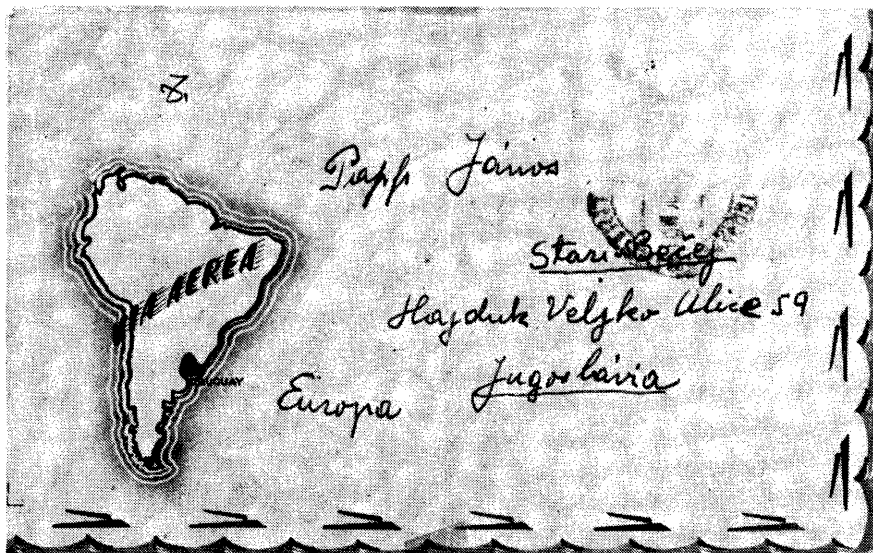 Papp János
Stari Bečej
Hajduk Veljko Ulice 59
Jugoslávia
Europa
VIA AEREA
URUGUAY